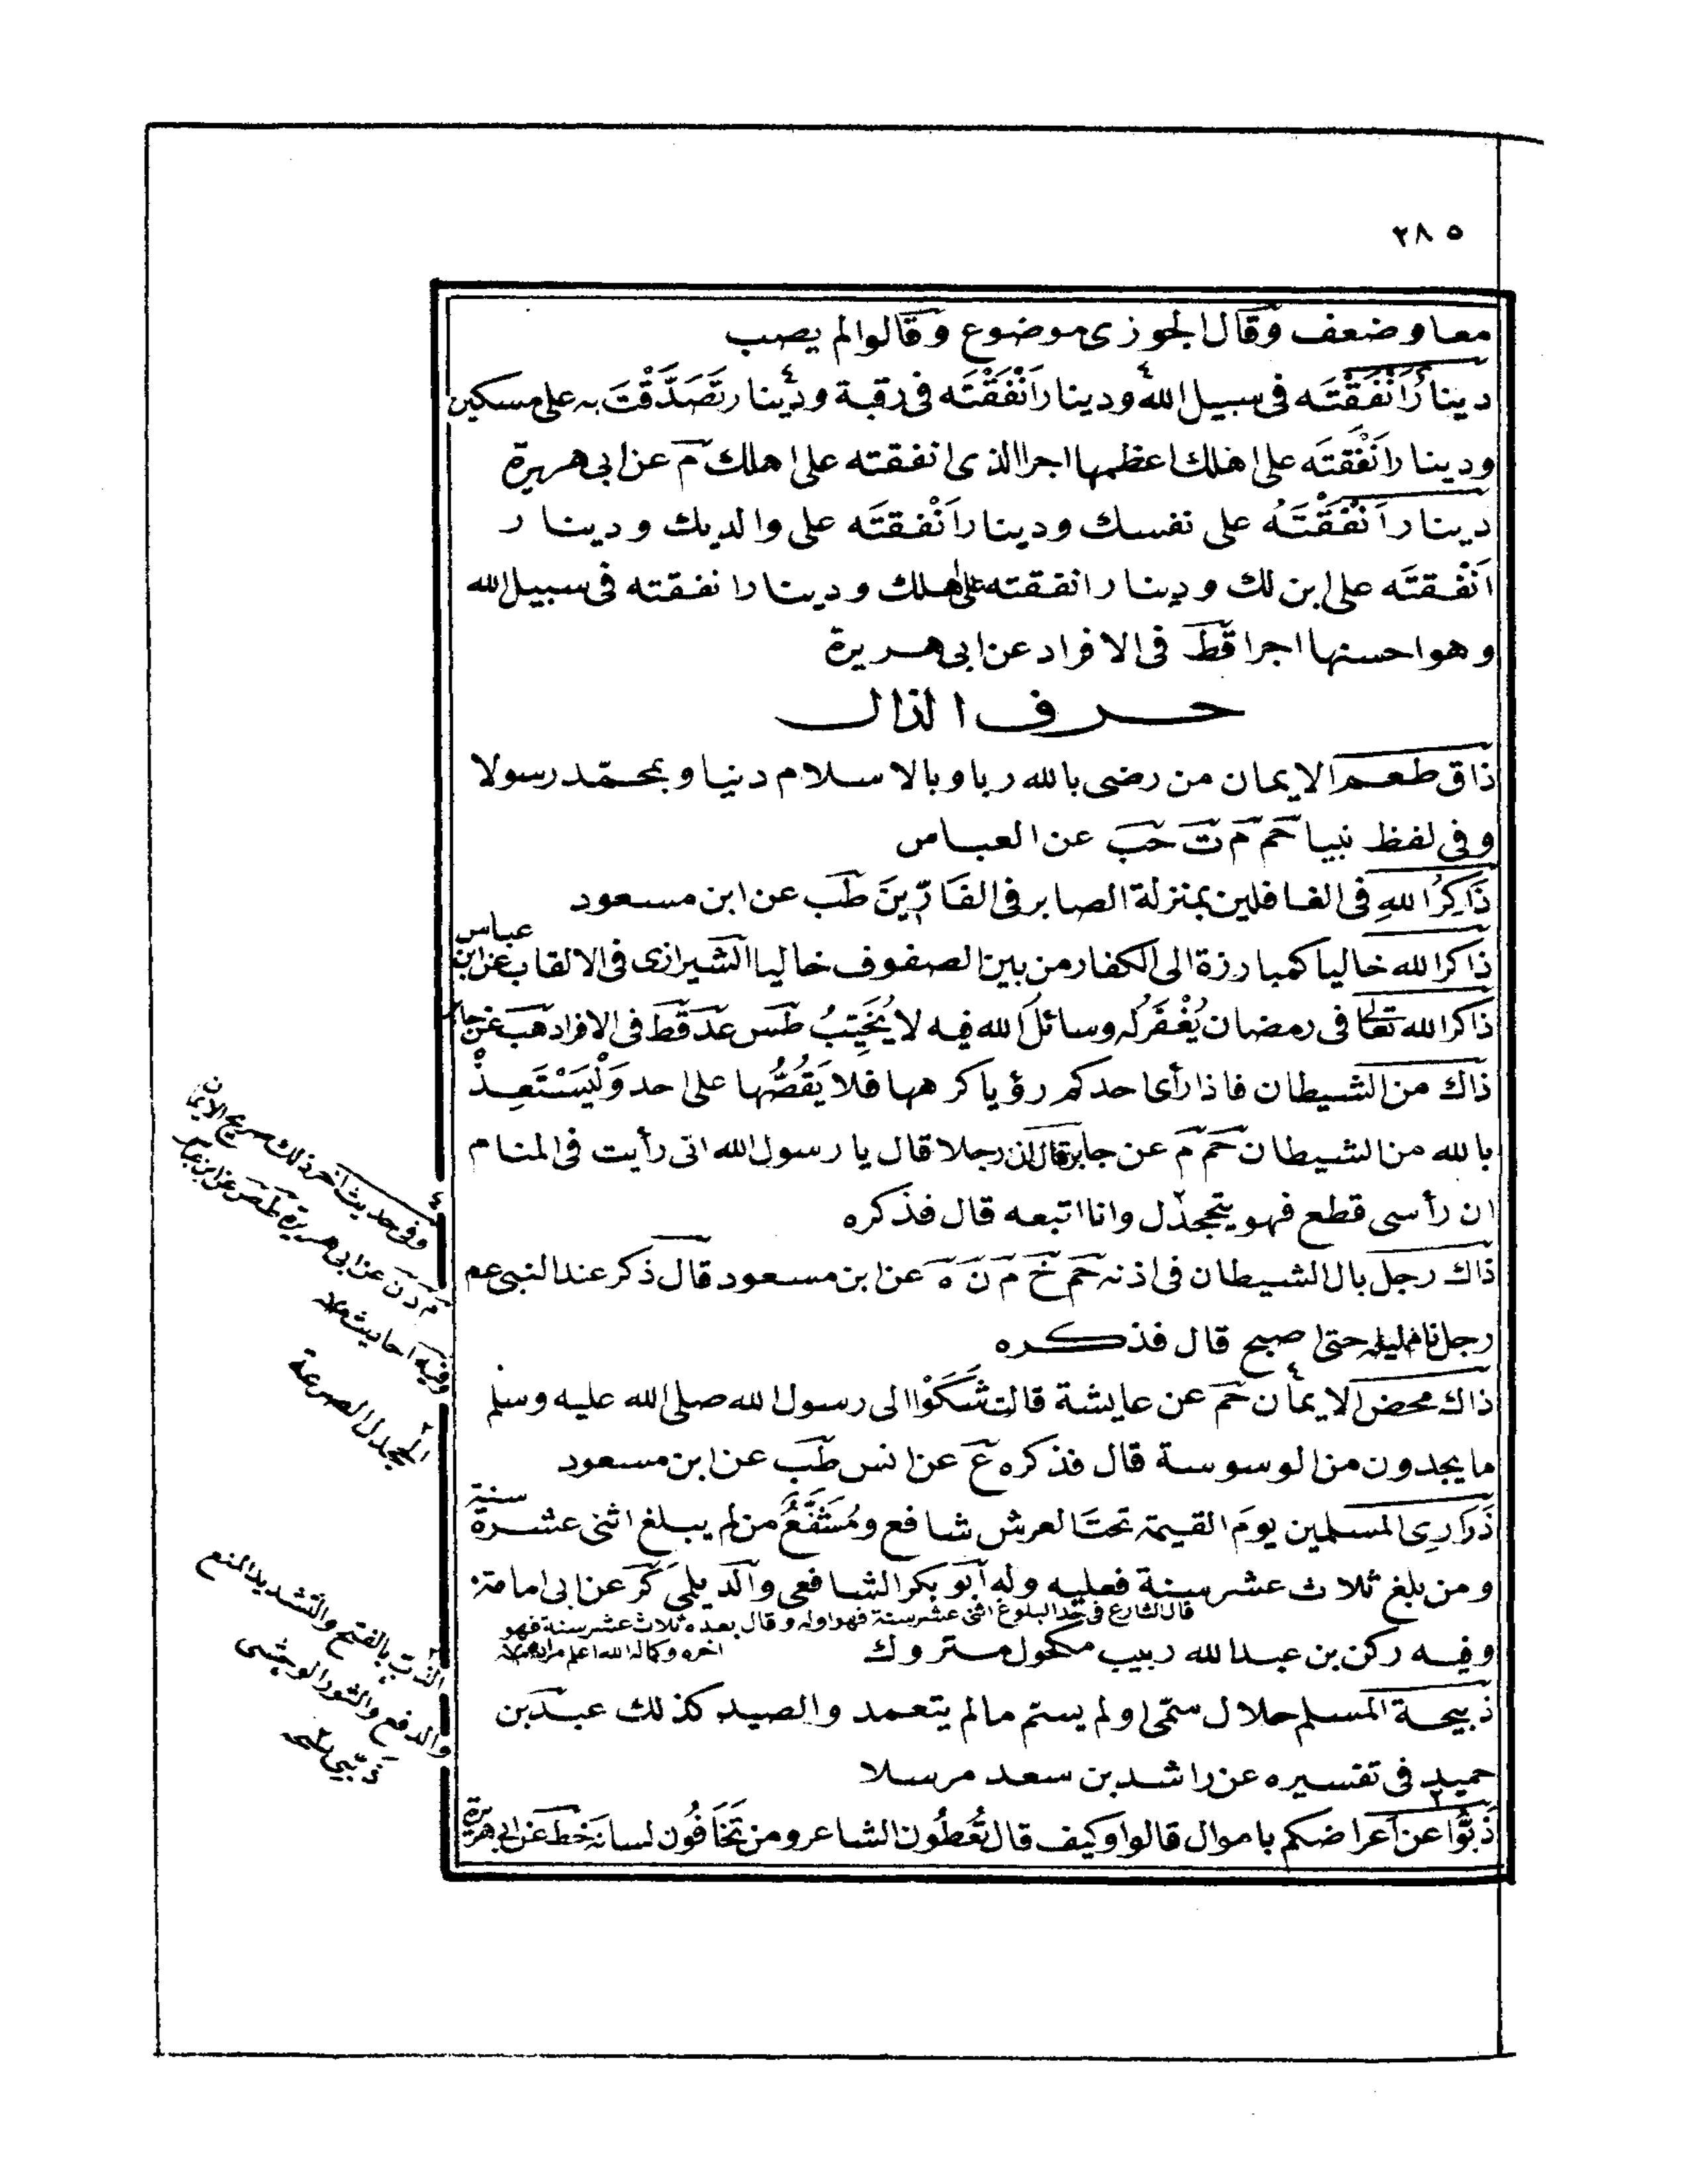 ٢٨٥
معا وضعف وقال الجوزى موضوع وقالوا لم يصب
دينارًا اَنْفَقْتَه فى سبيل الله ودينارا اَنْفَقْتَه فى رقبة ودينارا تَصَدَّقْتَ به على مسكين
ودينارا اَنْفَقْتَه على اهلك اعظمها اجرا الذى انفقته على اهلك م عن ابى هريرة
دينارا اَنْفَقْتَهُ على نفسك ودينارا اَنْفقتَه على والديك ودينار
اَنْفقتَه على ابن لك ودينارا انفقته على اهلك ودينارا نفقته فى سبيل الله
وهو احسنها اجرا قط فى الافراد عن ابى هريرة
حرف الذال
ذاق طعم الايمان من رضى بالله ربا وبالاسلام دينا وبمحمّد رسولا
وفى لفظ نبيا حم م ت حب عن العباس
ذَاكِرُ اللهِ فى الغافلين بمنزلة الصابر فى الفَارّينَ طب عن ابن مسعود
ذاكر الله خاليا كمبارزة الى الكفار من بين الصفوف خاليا الشيرازى فى الالقاب عن ابن عباس
ذاكر الله تعالى فى رمضان يُغْفَرُ له وسائلُ الله فيه لا يُخَيّبُ طس عد قط فى الافراد هب عن جابر
ذاك من الشيطان فاذا رأى احدكم رؤيا كرهها فلا يَقُصُّها على احد وَلْيَسْتَعِذْ
بالله من الشيطان حم م عن جابر قال ان رجلا قال يا رسول الله انى رأيت فى المنام
ان رأسى قطع فهو يتجحدل وانا اتبعه قال فذكره
ذاك رجل بال الشيطان فى اذنه حم خ م ن ه عن ابن مسعود قال ذكر عند النبى عم
رجل نام ليله حتى اصبح قال فذكره
ذاك محض الايمان حم عن عايشة قالت شَكَوْا الى رسول الله صلى الله عليه وسلم
ما يجدون من الوسوسة قال فذكره ع عن انس طب عن ابن مسعود
ذَرَارِى المسلمين يومَ القيمة تحتَ العرش شافع ومُشَفَّعٌ من لم يبلغ اثنى عشرة سنة
ومن بلغ ثلاث عشر سنة فعليه وله ابو بكر الشافعى والديلمى كر عن ابى امامة
قال الشارع فى حد البلوغ اثنى عشر سنة فهو اوله وقال بعده ثلاث عشر سنة فهو
اخره وكماله الله اعلم
وفيه ركن بن عبد الله ربيب مكحول متروك
ذبيحة المسلم حلال سمّى او لم يسمّ ما لم يتعمد والصيد كذلك عبد بن
حميد فى تفسيره عن راشد بن سعد مرسلا
ذُبُّوا عن اَعراضكم باموال قالوا وكيف قال تُعْطُون الشاعر ومن تَخَافُون لسانه خط عن ابى هريرة
وفى حديث آخر ذلك صريح الايمان
م د ن عن ابى هريرة طص عن ابن
وفيه احاديث
المجحدل الصرعة
الذب بالفتح والتشديد المنع
والدفع والثور الوحشى